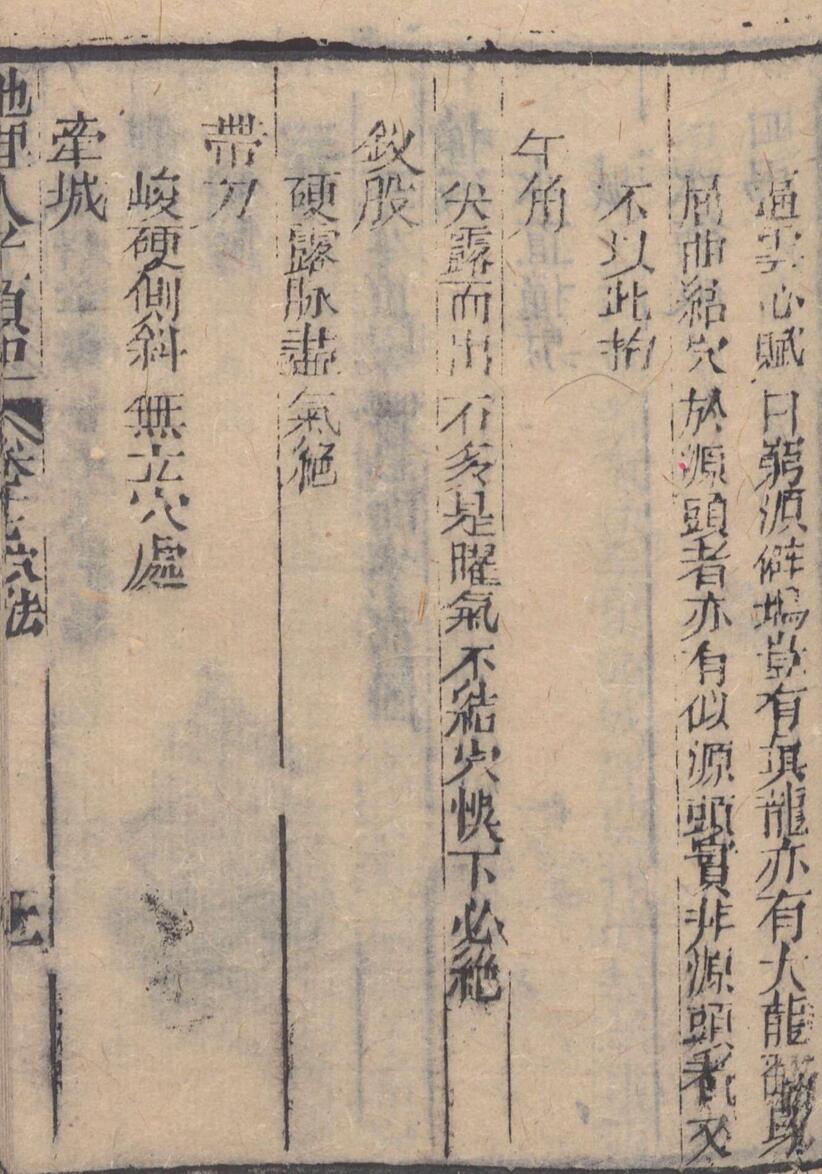 逼雲心賦曰窮源僻塢豈有真龍亦有大龍
屈曲結穴於源頭者亦有似源頭實非源頭者又
不以此拘
牛角
尖露而出不多是曜氣不結穴悞下必絶
釵股
硬露脉盡氣絕
帶刀
峻硬側斜無立穴處
牽城
地理人子須知 卷 穴法